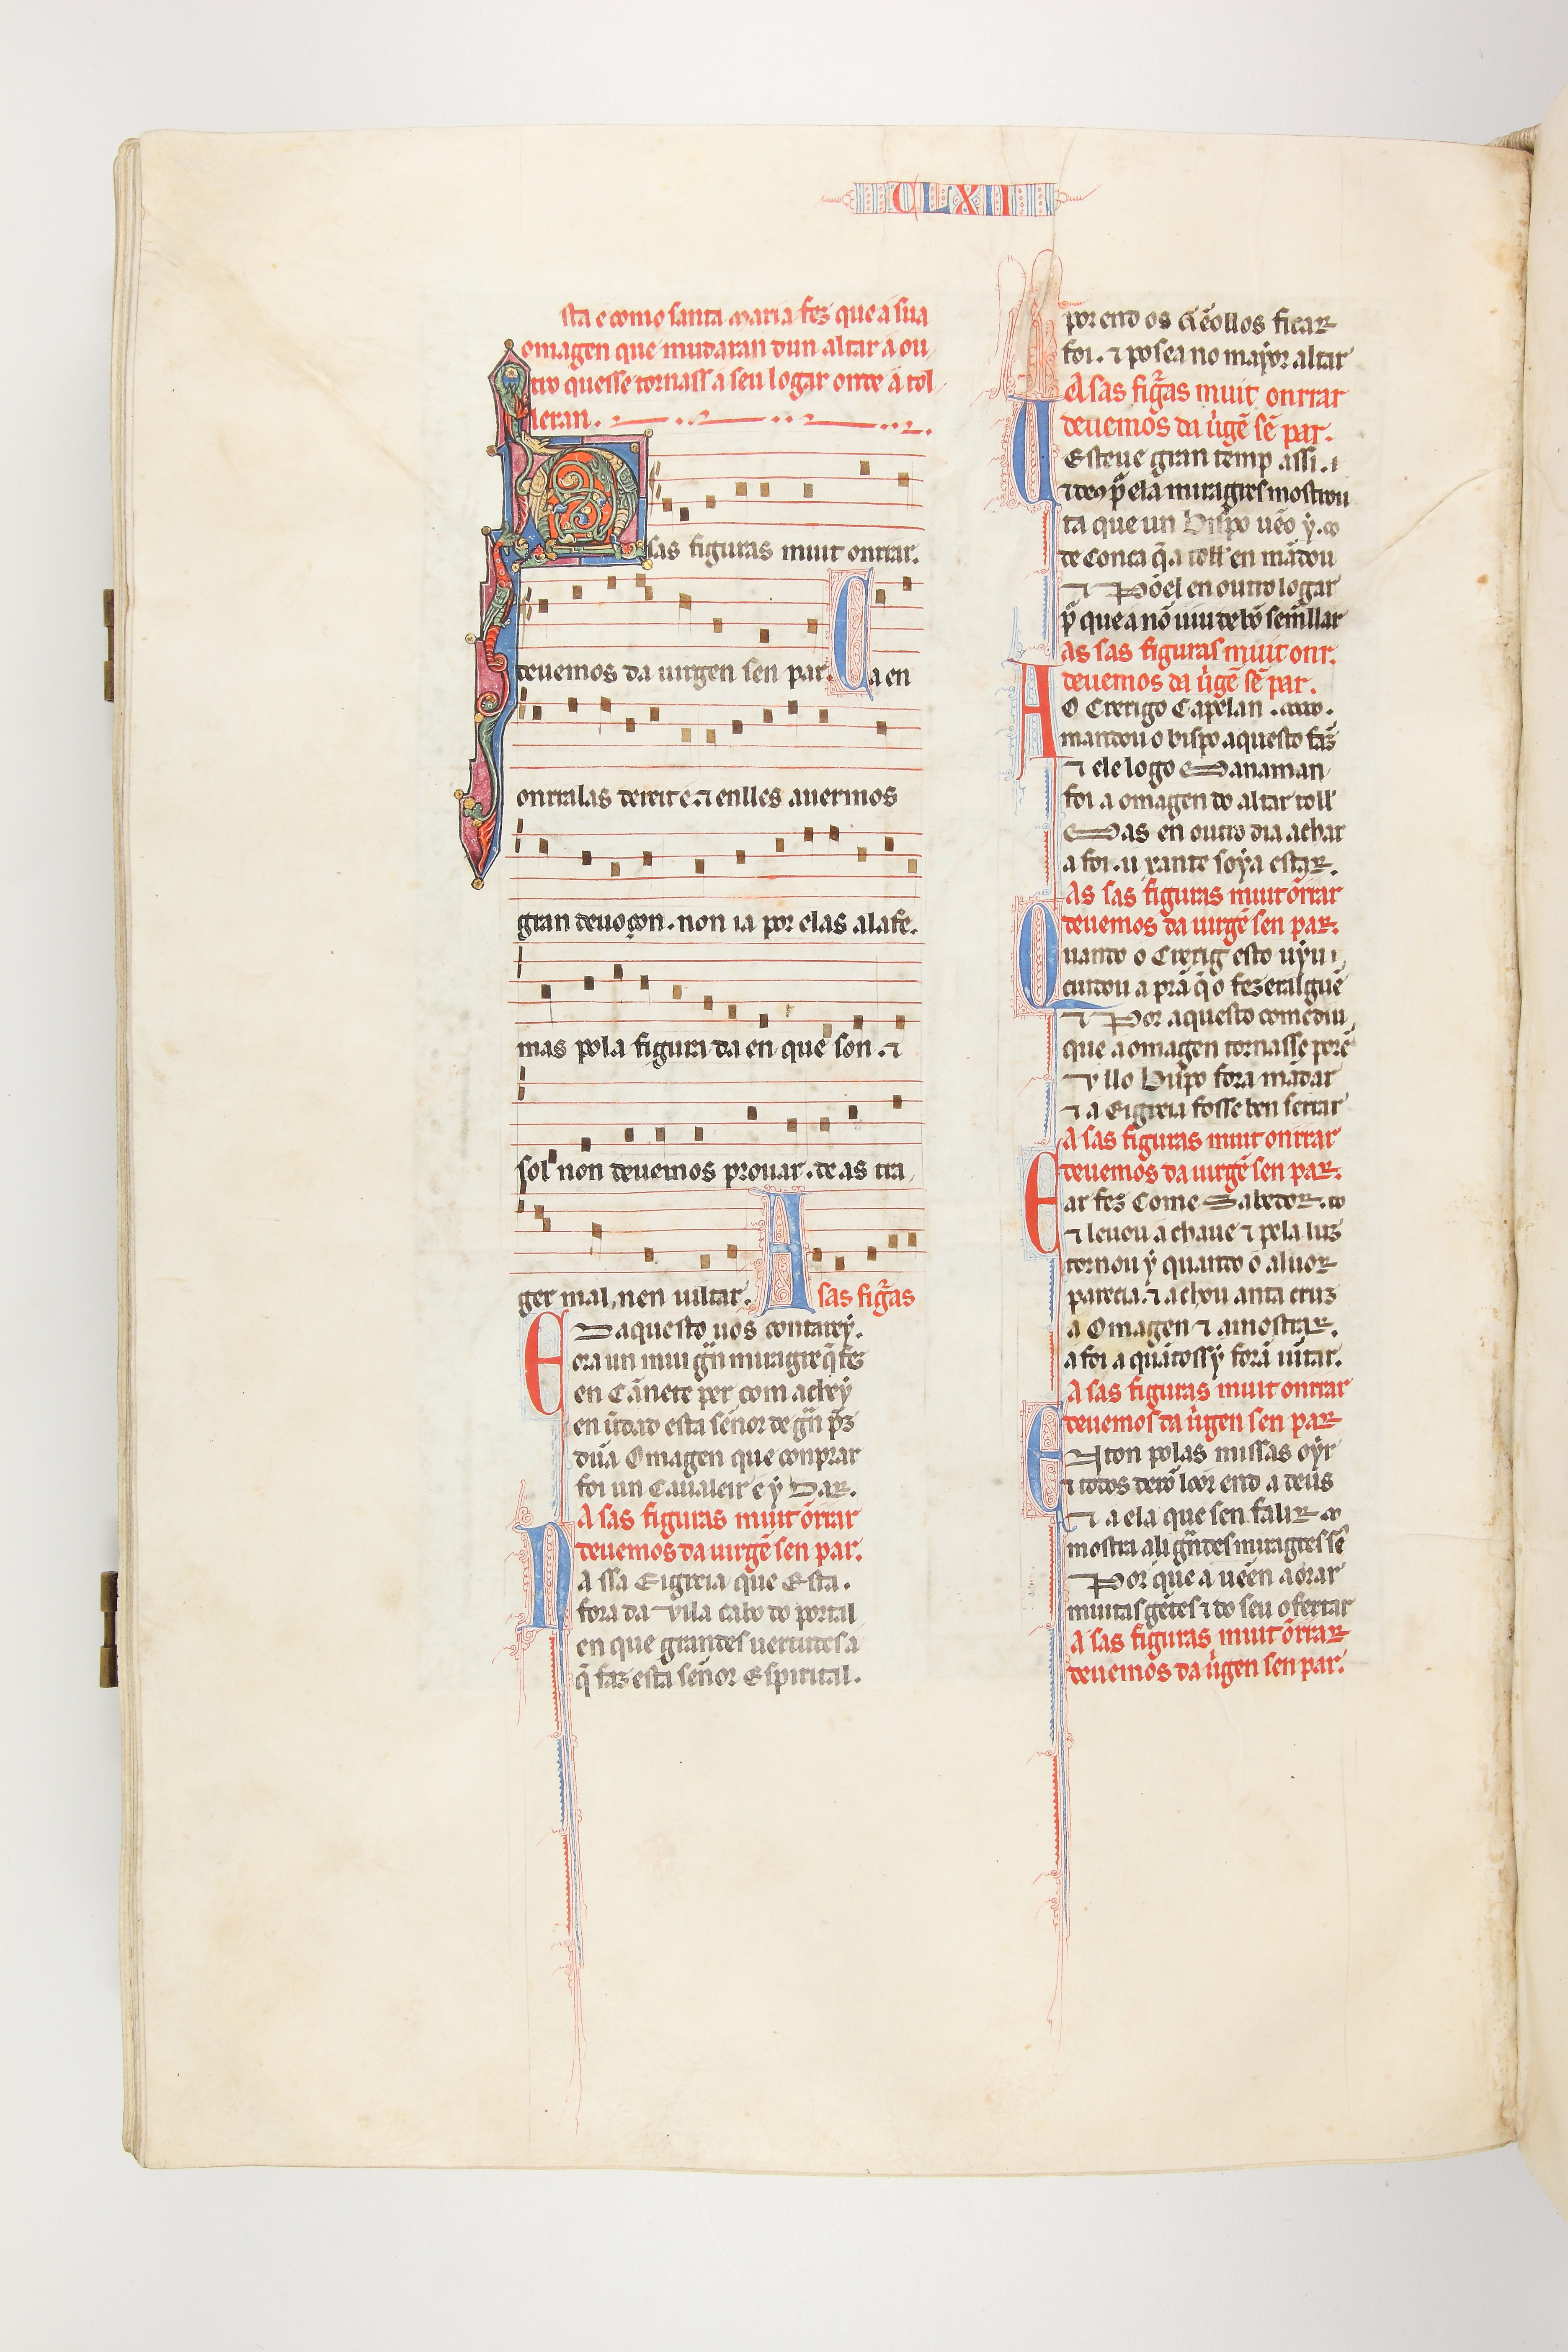 CLXII
sta e como santa maria fez que a sua
omagen que mudaran dun altar a ou
tro quesse tornass a seu logar onde a tol
leran.
A sas figuras muit onrrar.
deuemos da uirgen sen par. Ca en
onrralas dereit é. ⁊ en lles auermos
gran deuoçon. non ia por elas a la fe.
mas pola figura da en que son. ⁊
sol non deuemos prouar. de as tra
ger mal, nen uiltar. A sas fig̃as
E Daquesto uos contarey.
ora un mui gr̃n miragre q̃ fez
en Cãnete per com achey
en u̾dad esta sẽnor de gr̃n prez
dũa Omagen que conprar
foi un Caualeir e y Dar.
A sas figuras muit õrrar
deuemos da uirgẽ sen par.
Na ssa Eigreia que Esta.
fora da vila cabo do portal
en que grandes uertudes a
q̃ faz esta sẽnor Espirital.
por end os gẽollos ficar
foi. ⁊ posea no mayor altar
A sas fig̃as muit onrrar
deuemos da u̾gẽ sẽ par.
Esteue gran temp assi.
ta que un Bispo uẽo y.
de Conca q̃a toll en mãdou
⁊ Põel en outro logar
As sas figuras muit onr.
deuemos da u̾gẽ sẽ par.
AO Crerigo Capelan.
mandou o bispo aquesto faz
⁊ ele logo Manaman
foi a omagen do altar toll
Mas en outro dia achar
a foi. u xante soya estar.
As sas figuras muit õrrar
deuemos da uirgẽ sen par.
Quando o Crerig esto uyu
cuidou a prã q̃ o fezera alguẽ
⁊ Por aquesto comediu
que a omagen tornasse porẽ
v llo Bispo fora mãdar
⁊ a Eigreia fosse ben serrar
A sas figuras muit onrrar
deuemos da uirgẽ sen par.
E ar fez Come Sabedor.
⁊ leuou a chaue ⁊ pela luz
tornou y quando o aluor
parecia. ⁊ achou anta cruz
a Omagen ⁊ amostrar.
a foi a quãtossy forã iũtar.
A sas figuras muit onrrar
deuemos da u̾gen sen par
Enton polas missas oyr
⁊ todos derõ loor end a deus
⁊ a ela que sen falir
mostra ali gr̃ndes miragres sẽ
Por que a uẽen aorar
muitas gẽtes ⁊ do seu ofertar
A sas figuras muit õrrar
deuemos da u̾gen sen par.